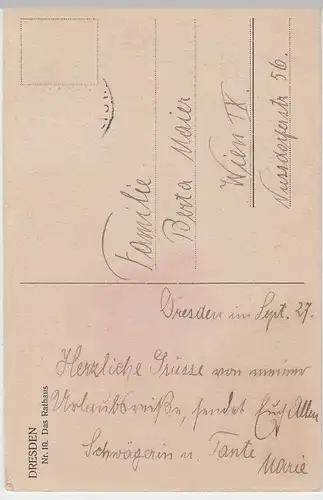 DRESDEN
Nr. 10. Das Rathaus
Dresden im Sept. 27.
Herzliche Grüsse von meiner
Urlaubsreise, sendet Euch Allen
Schwägerin u. Tante
Marie
Familie
Berta Maier
Wien IX.
Nussdorferstr 56.